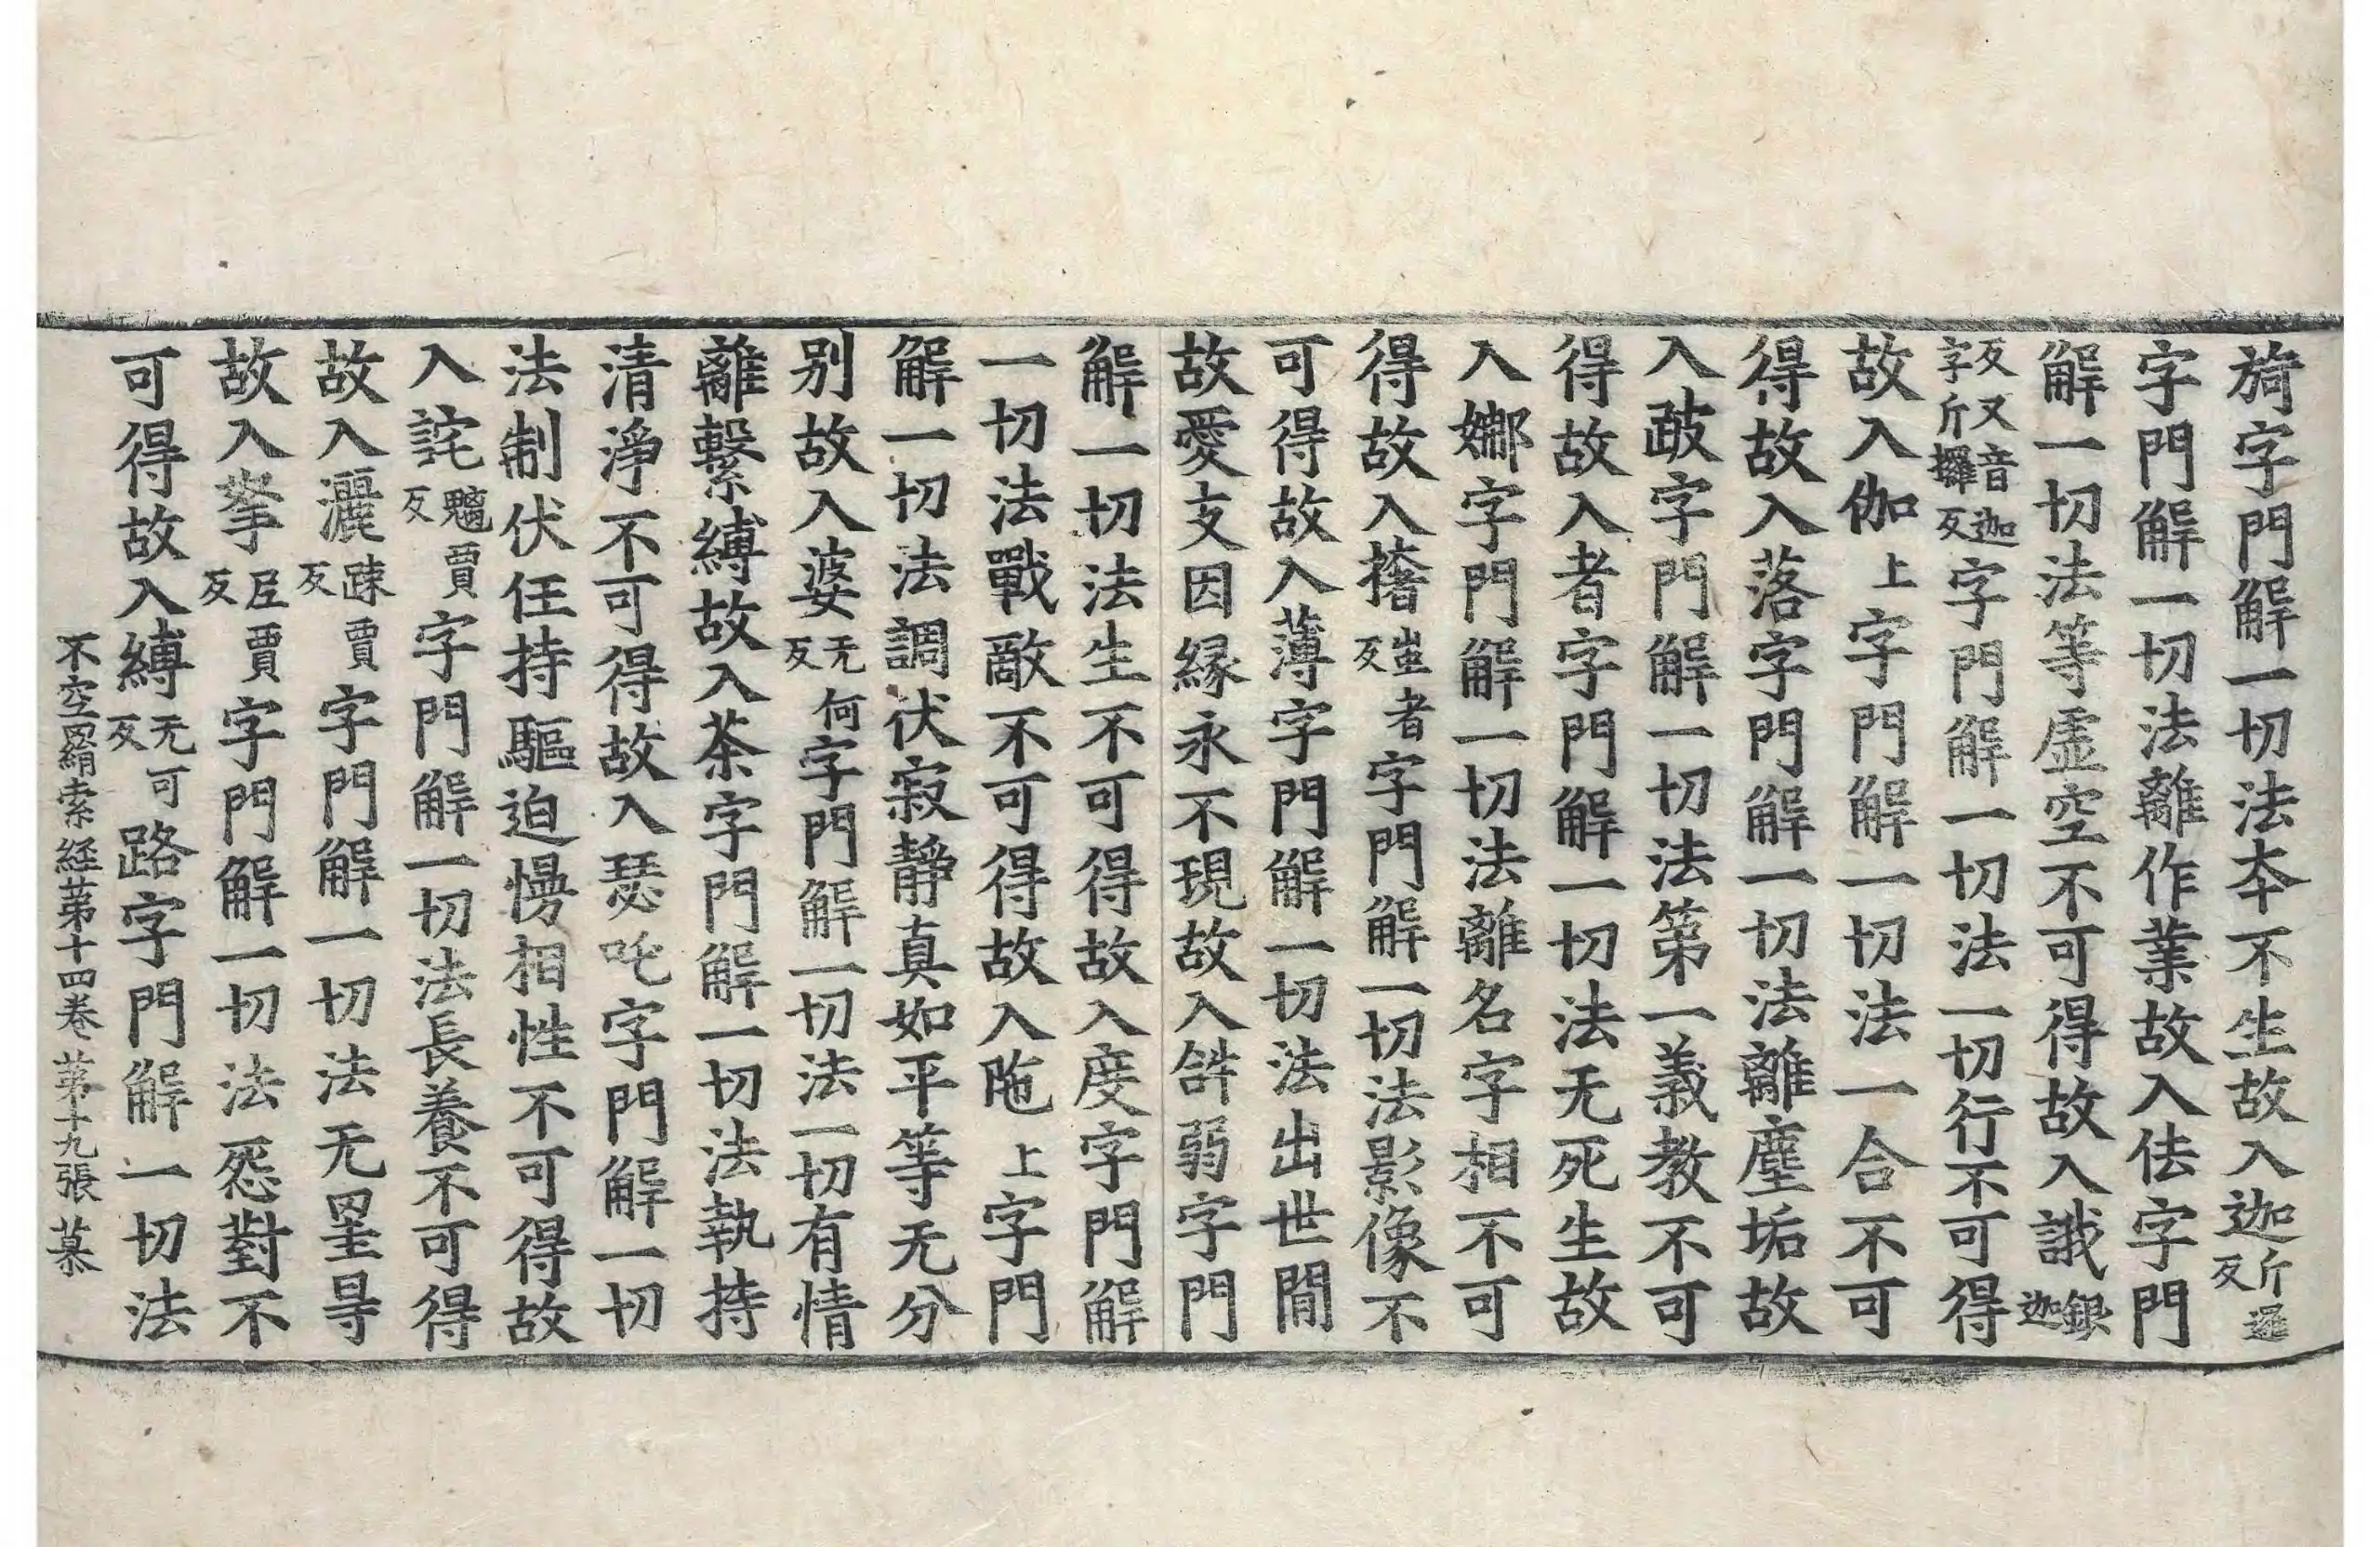 旖字門解一切法夲不生故入迦斤邏反
字門解一切法離作業故入佉字門
解一切法等虛空不可得故入誐銀迦
反又音迦字斤攞反字門解一切法一切行不可得
故入伽上字門解一切法一合不可
得故入落字門解一切法離塵垢故
入跛字門解一切法第一義教不可
得故入者字門解一切法无死生故
入娜字門解一切法離名字相不可
得故入撦蚩者反字門解一切法影像不
可得故入薄字門解一切法出世閒
故愛支因緣永不現故入弱字門
解一切法生不可得故入度字門解
一切法戰敵不可得故入陁上字門
解一切法調伏寂靜真如平等无分
别故入婆无何反字門解一切法一切有情
離繫縛故入荼字門解一切法執持
清淨不可得故入瑟吒字門解一切
法制伏任持驅迫慢相性不可得故
入詫魑賈反字門解一切法長養不可得
故入灑踈賈反字門解一切法无罣㝵
故入拏𡰱賈反字門解一切法怨對不
可得故入縛无可反路字門解一切法
不空羂索経苐十四卷 苐十九張 慕